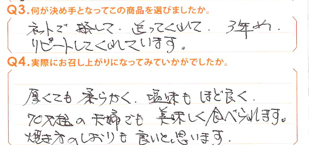 Q3.何が決め手となってこの商品を選びましたか。
ネットで探して、送ってくれて、3年め、
リピートしてくれています。
Q4.実際にお召し上がりになってみていかがでしたか。
厚くても柔らかく、塩味もほど良く、
70代の夫婦でも美味しく食べられます。
焼き方のしおりも良いと思います。